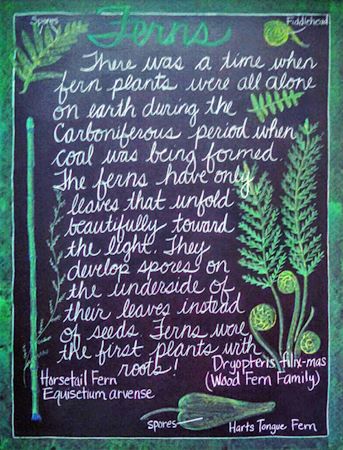 Spores
Ferns
Fiddlehead
There was a time when
fern plants were all alone
on earth during the
Carboniferous period when
coal was being formed.
The ferns have only
leaves that unfold
beautifully toward
the light. They
develop spores on
the underside of
their leaves instead
of seeds. Ferns were
the first plants with
roots!
Horsetail Fern
Equisetium arvense
Dryopteris filix-mas
(Wood Fern Family)
spores
Harts Tongue Fern